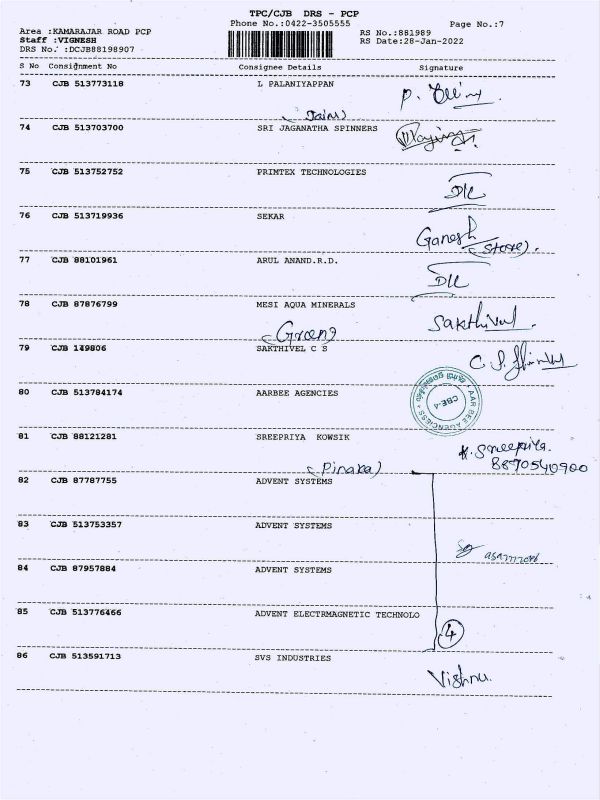 TPC/CJB DRS - PCP
Phone No.:0422-3505555
Page No.:7
Area :KAMARAJAR ROAD PCP
RS No.:881989
Staff :VIGNESH
RS Date:28-Jan-2022
DRS No. :DCJB88198907
S No Consignment No Consignee Details Signature
73 CJB 513773118 L PALANIYAPPAN
(Jain)
74 CJB 513703700 SRI JAGANATHA SPINNERS
75 CJB 513752752 PRIMTEX TECHNOLOGIES
76 CJB 513719936 SEKAR
Ganesh
(Store).
77 CJB 88101961 ARUL ANAND.R.D.
78 CJB 87876799 MESI AQUA MINERALS
Sakthivel.
79 CJB 149806 SAKTHIVEL C S
80 CJB 513784174 AARBEE AGENCIES
AAR BEE AGENCIESS
CBE-4
81 CJB 88121281 SREEPRIYA KOWSIK
K. Sreepriya.
8870540900
(Pinaka)
82 CJB 87787755 ADVENT SYSTEMS
83 CJB 513753357 ADVENT SYSTEMS
84 CJB 87957884 ADVENT SYSTEMS
85 CJB 513776466 ADVENT ELECTRMAGNETIC TECHNOLO
4
86 CJB 513591713 SVS INDUSTRIES
Vishnu.